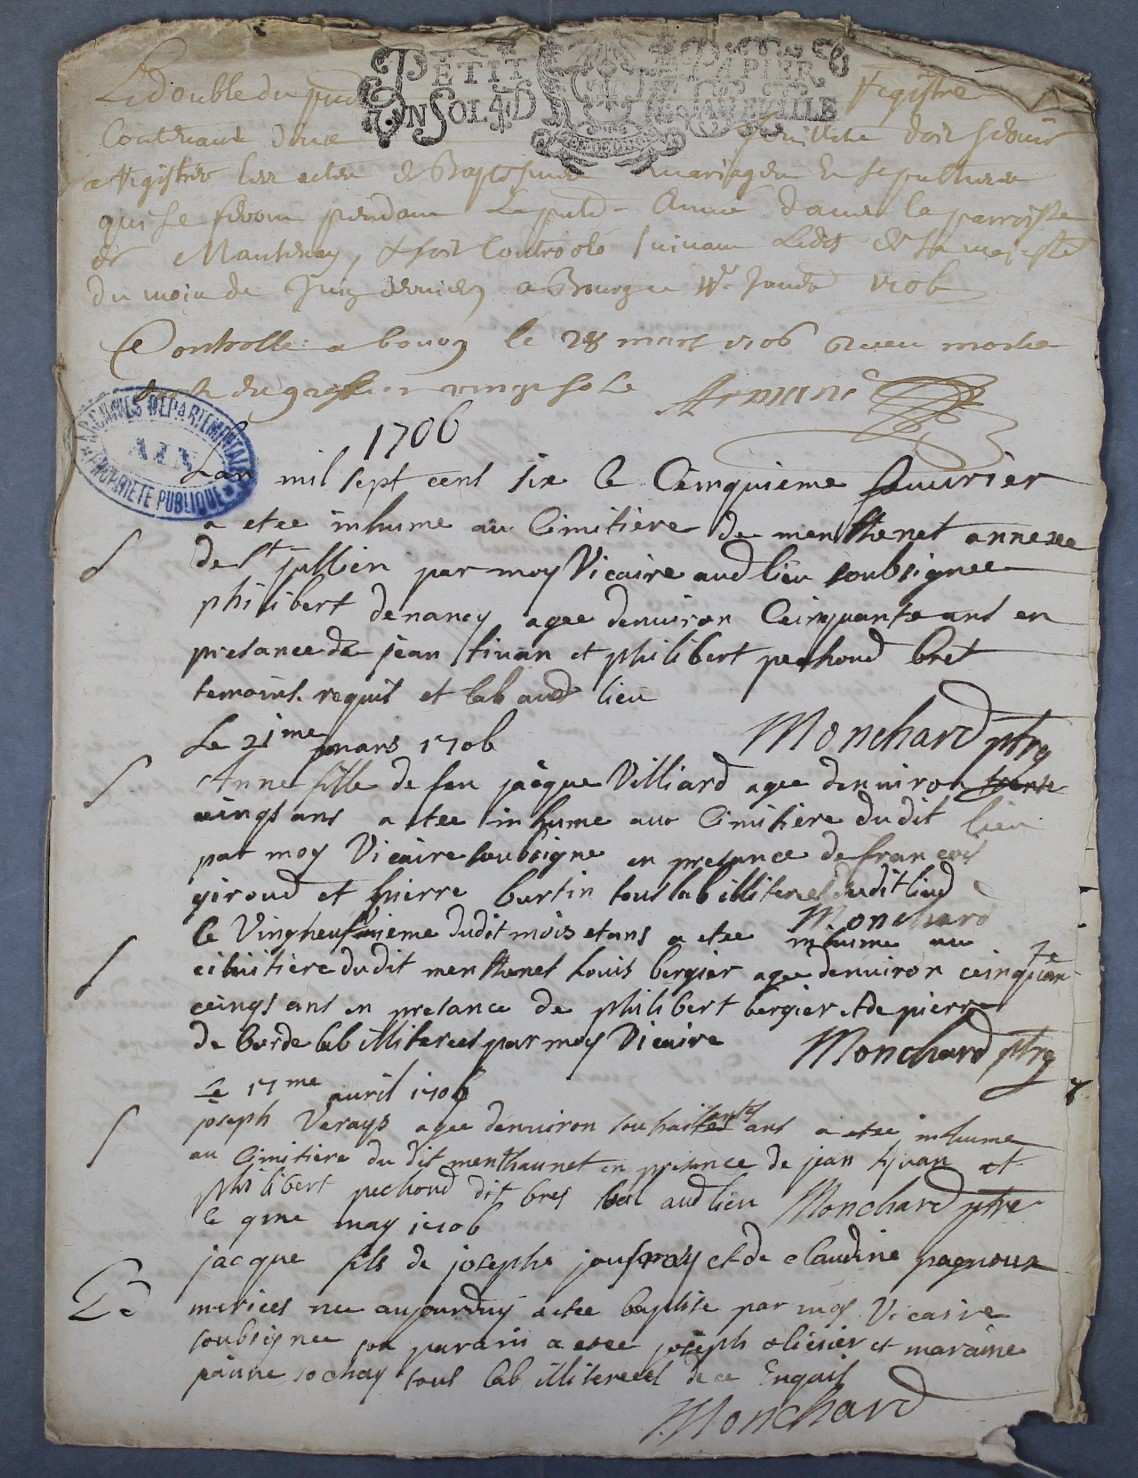 PETIT PAPIER
UN SOL 4 D LA FEUILLE
Le double du pnt Registre
Contenant douze feuillets doit servir
a Registrer les actes de Baptesmes mariages et sepultures
qui se feront pendant la pnte Année dans la parroisse
de Mantenay, & soit Controolé suivant L'edit de sa majesté
du mois de Juin dernier a Bourg ce Janv 1706
Controllé a bourg le 28 mars 1706
vingt sols Armand
ARCHIVES DÉPARTEMENTALES
AIN
PROPRIÉTÉ PUBLIQUE
1706
Lan mil sept cent six le Cinquieme feuurier
a etee inhume au Cimitiere de menthenet annexe
de St jullien par moy Vicaire aud lieu soubsignee
philibert denancy agee denuiron Ceinquante ans en
presance de jean tiuan et philibert pechoud bret
temoins requis et lab aud lieu
Monchard ptre
Le 21me mars 1706
Anne fille de feu jacque Villiard agee denuiron
ceings ans a etee inhume auo Cimitiere dudit lieu
par moy Vicaire soubsigne en presance de francois
giroud et pierre burtin tous lab illiteres dudit lieu
Monchard
le Vingt dudit mois et ans a etee inhume au
cimitiere dudit menthenet Louis bergier agee denuiron ceinquante
ceings ans en presance de philibert bergier et de pierre
de borde lab illiterees par moy Vicaire Monchard ptre
Le 17me auril 1706
joseph Verays agee denuiron ans a etee inhume
au Cimitiere du dit menthaunet en presance de jean tiuan et
philibert pechoud dit bres lab aud lieu Monchard ptre
le 9me may 1706
jacque fils de josephe joufray et de claudine pagnoux
maries nee aujourduy a etee baptise par moy Vicaire
soubsignee son parain a etee joseph oliuier et maraine
janne sochay tous lab illiterees de ce Enquis
Monchard